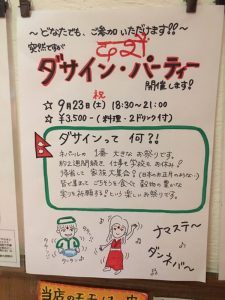 ～どなたでも、ご参加いただけます!!～
突然ですが
ダサイン・パーティー
開催します!
祝
☆ 9月23日(土) 18:30～21:00
☆ ¥3,500-(料理・2ドリンク付)
ダサインって 何?!
ネパールの 1番 大きな お祭りです。
約2週間続き、仕事も学校も お休み!
帰省して 家族大集合!(日本のお正月みたい…)
皆が集まって ごちそうを食べて 穀物の豊かな
実りを祈願する! という 楽しい お祭りです。
ナマステ～
ダンネバ～
当店のモモ